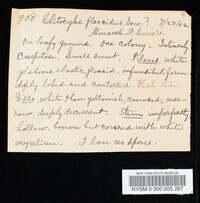 908 Clitocybe flaccidus, Sow.? 7/27/02
On leafy ground. One colony. Intensely
Cespitose. Smell sweet. Pileus, white
glabrous elastic flaccid, infundibuliform
deeply lobed and contorted. Flesh thin
Gills, white then yellowish, crowded, nar-
row, deeply decurrent. Stem imperfectly
hollow, brown but covered with white
mycelium. I have no spores.
NEW YORK STATE MUSEUM
NYSM 0 000 005 267